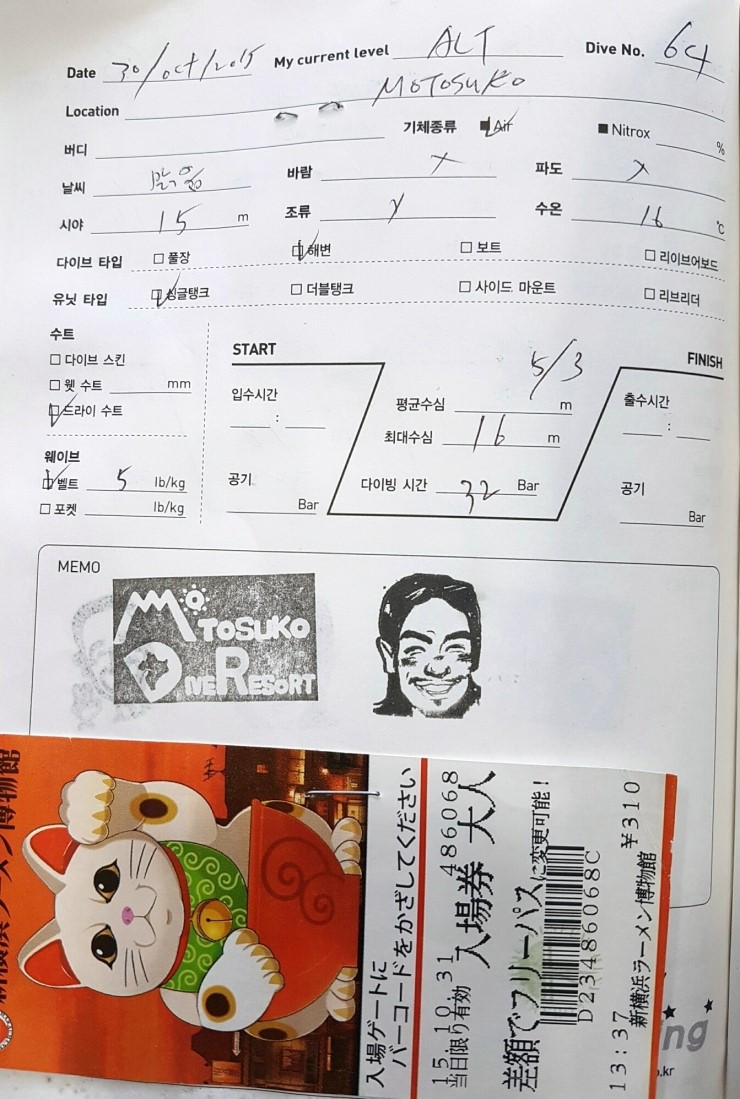 Date 30/oct/2015 My current level ALT Dive No. 64
Location MOTOSUKO
버디 기체종류 ■ Air ■ Nitrox %
날씨 맑음 바람 X 파도 X
시야 15 m 조류 X 수온 16 ℃
다이브 타입 □ 풀장 □ 해변 □ 보트 □ 리이브어보드
유닛 타입 □ 싱글탱크 □ 더블탱크 □ 사이드 마운트 □ 리브리더
수트
□ 다이브 스킨
□ 웻 수트 mm
□ 드라이 수트
웨이브
□ 벨트 5 lb/kg
□ 포켓 lb/kg
START
입수시간
:
공기
Bar
5/3
평균수심 m
최대수심 16 m
다이빙 시간 32 Bar
FINISH
출수시간
:
공기
Bar
MEMO
MOTOSUKO
DIVE RESORT
新横浜ラーメン博物館
入場ゲートに
バーコードをかざしてください
15.10.31 486068
当日限り有効 入場券 大人
差額でフリーパスに変更可能!
D23486068C
13:37 ¥310
新横浜ラーメン博物館
ng
.kr